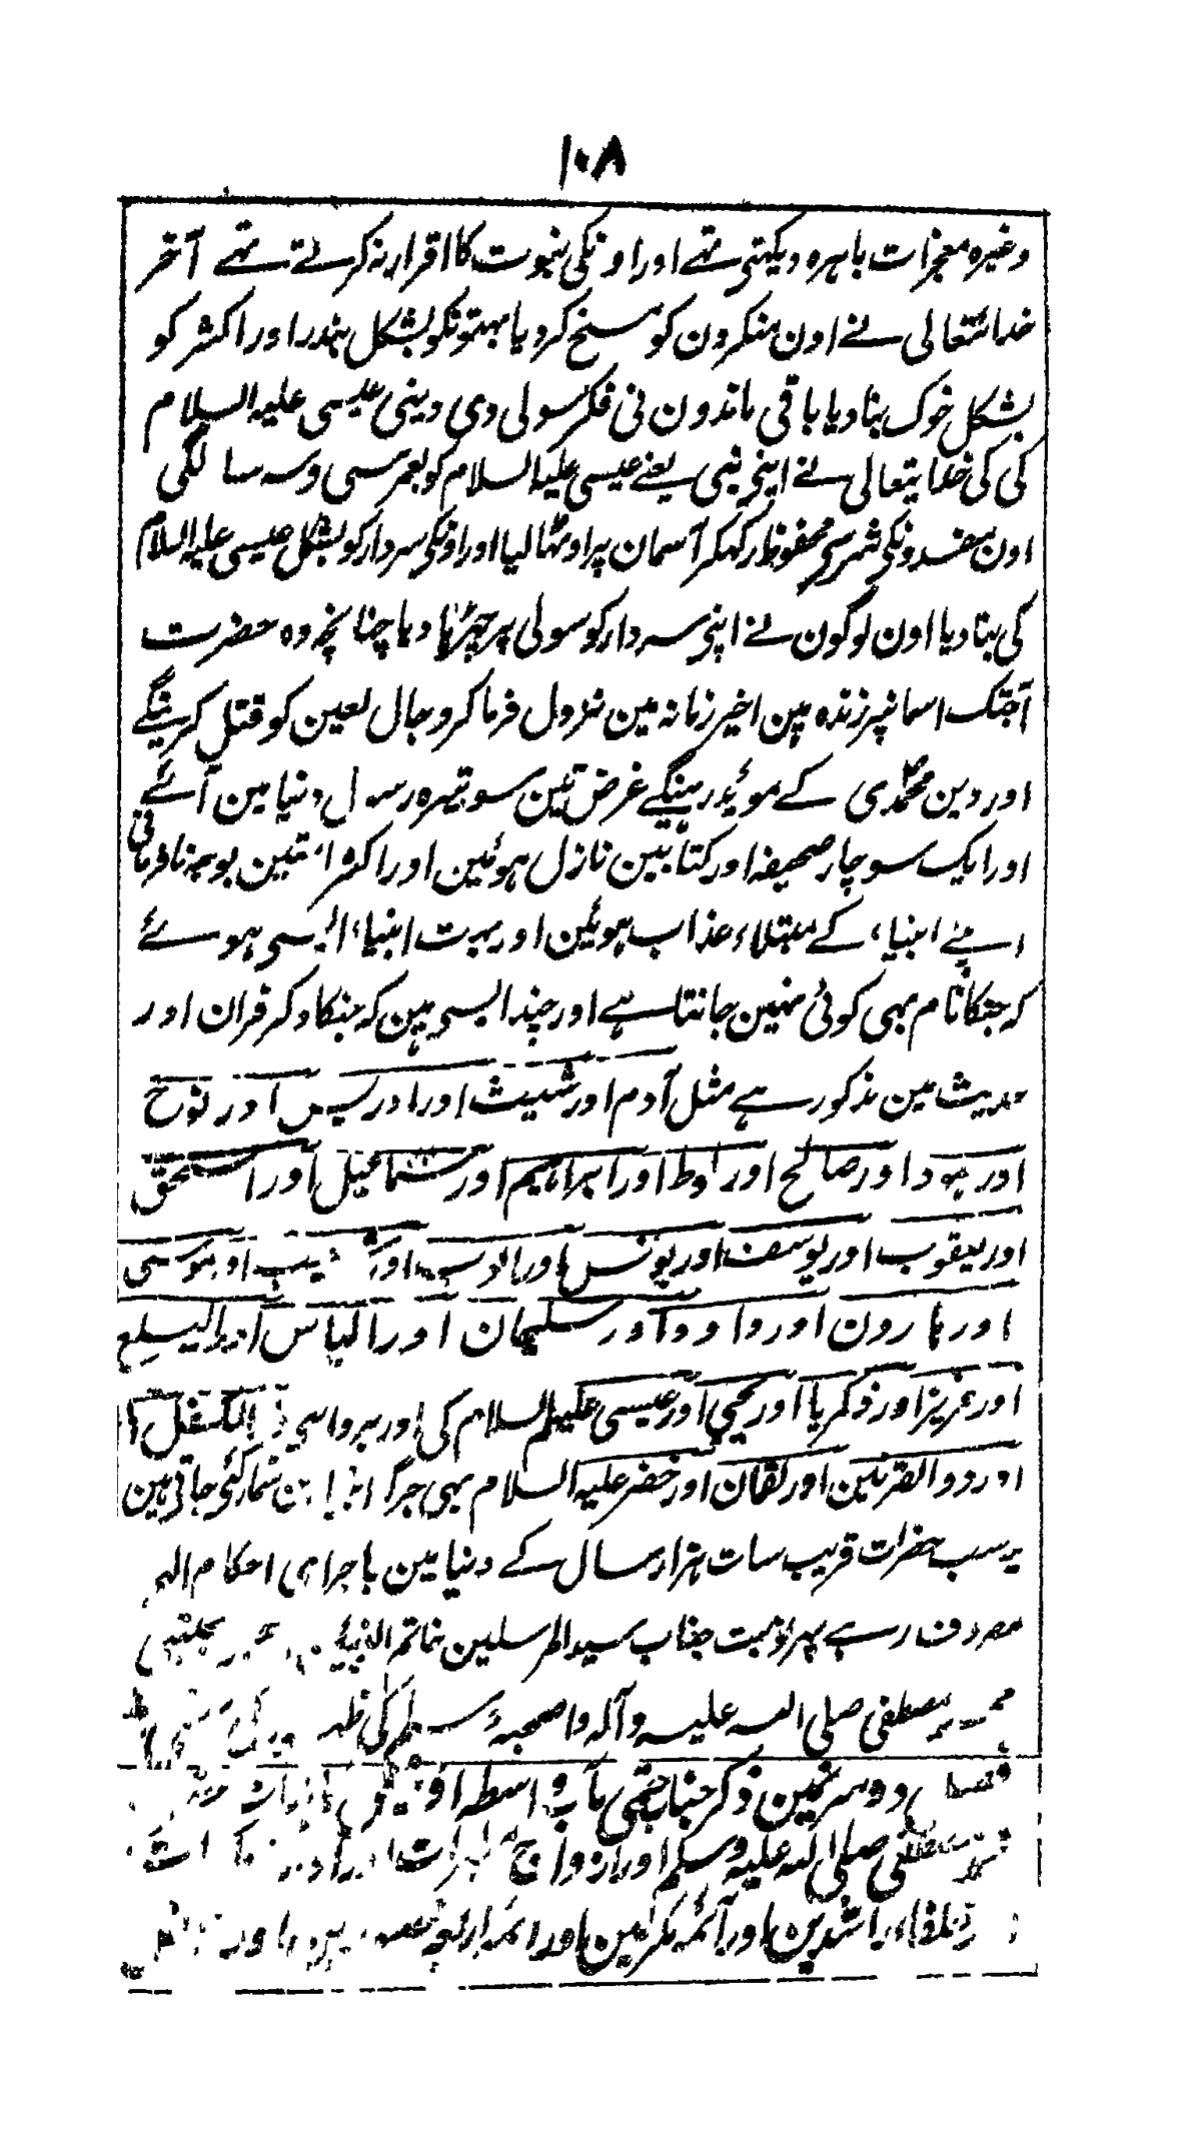 ۱۰۸
وغیرہ معجزات باہرہ دیکہتی تہے اور اونکی نبوت کا اقرار نہ کرتے تہے آخر
خدائتعالی نے اون منکرون کو مسخ کر دیا بہتونکو بشکل بندر اور اکثر کو
بشکل خوک بنا دیا باقی ماندون نی فکر سولی دی دینی عیسی علیہ السلام
کی کی خدایتعالی نے اپنی نبی یعنے عیسی علیہ السلام کو بعمر سی وسہ سالگی
اون مفسدونکی شر سی محفوظ رکہکر آسمان پر اوٹہا لیا اور اونکی سردار کو بشکل عیسی علیہ السلام
کی بنا دیا اون لوگون نے اپنی سردار کو سولی پر چڑہا دیا چنانچہ وہ حضرت
آجتک اسمانپر زندہ ہین اخیر زمانہ مین نزول فرما کر دجال لعین کو قتل کرینگے
اور دین محمدی کے موئید رہینگے غرض تین سو تیرہ رسول دنیا مین آئے
اور ایک سو چار صحیفہ اور کتابین نازل ہوئین اور اکثر امتین بوجہ نافرمانی
اپنے انبیاء کے مبتلاء عذاب ہوئین اور بہت انبیاء ایسی ہوئے
کہ جنکا نام بہی کوئی نہین جانتا ہے اور چند ایسی ہین کہ جنکا ذکر قران اور
حدیث مین مذکور ہے مثل آدم اور شیث اور ادریس اور نوح
اور ہود اور صالح اور لوط اور ابراہیم اور سماعیل اور اسحق
اور یعقوب اور یوسف اور یونس اور ایوب اور شعیب اور موسی
اور ہارون اور داوود اور سلیمان اور الیاس اور الیسع
اور عزیز اور ذکریا اور یحیی اور عیسی علیہم السلام کی اور سروا سی ذالکفل
اور ذوالقرنین اور لقمان اور خضر علیہ السلام بہی جرگہ انبیا مین شمار کئی جاتی ہین
یہ سب حضرات قریب سات ہزار سال کے دنیا مین با جرای احکام الہی
مصروف رہے پہر نوبت جناب سید المرسلین خاتم النبیین مجتبی
محمد مصطفی صلی اللہ علیہ وآلہ واصحبہ وسلم کی
فصل دوسرئمین ذکر جناب ختمی مآب و اسطہ
محمد مصطفی صلی اللہ علیہ وسلم اور ازواج مطہرات اور
خلفاء راشدین اور آئمہ مکرمین اور ائمہ اربعہ